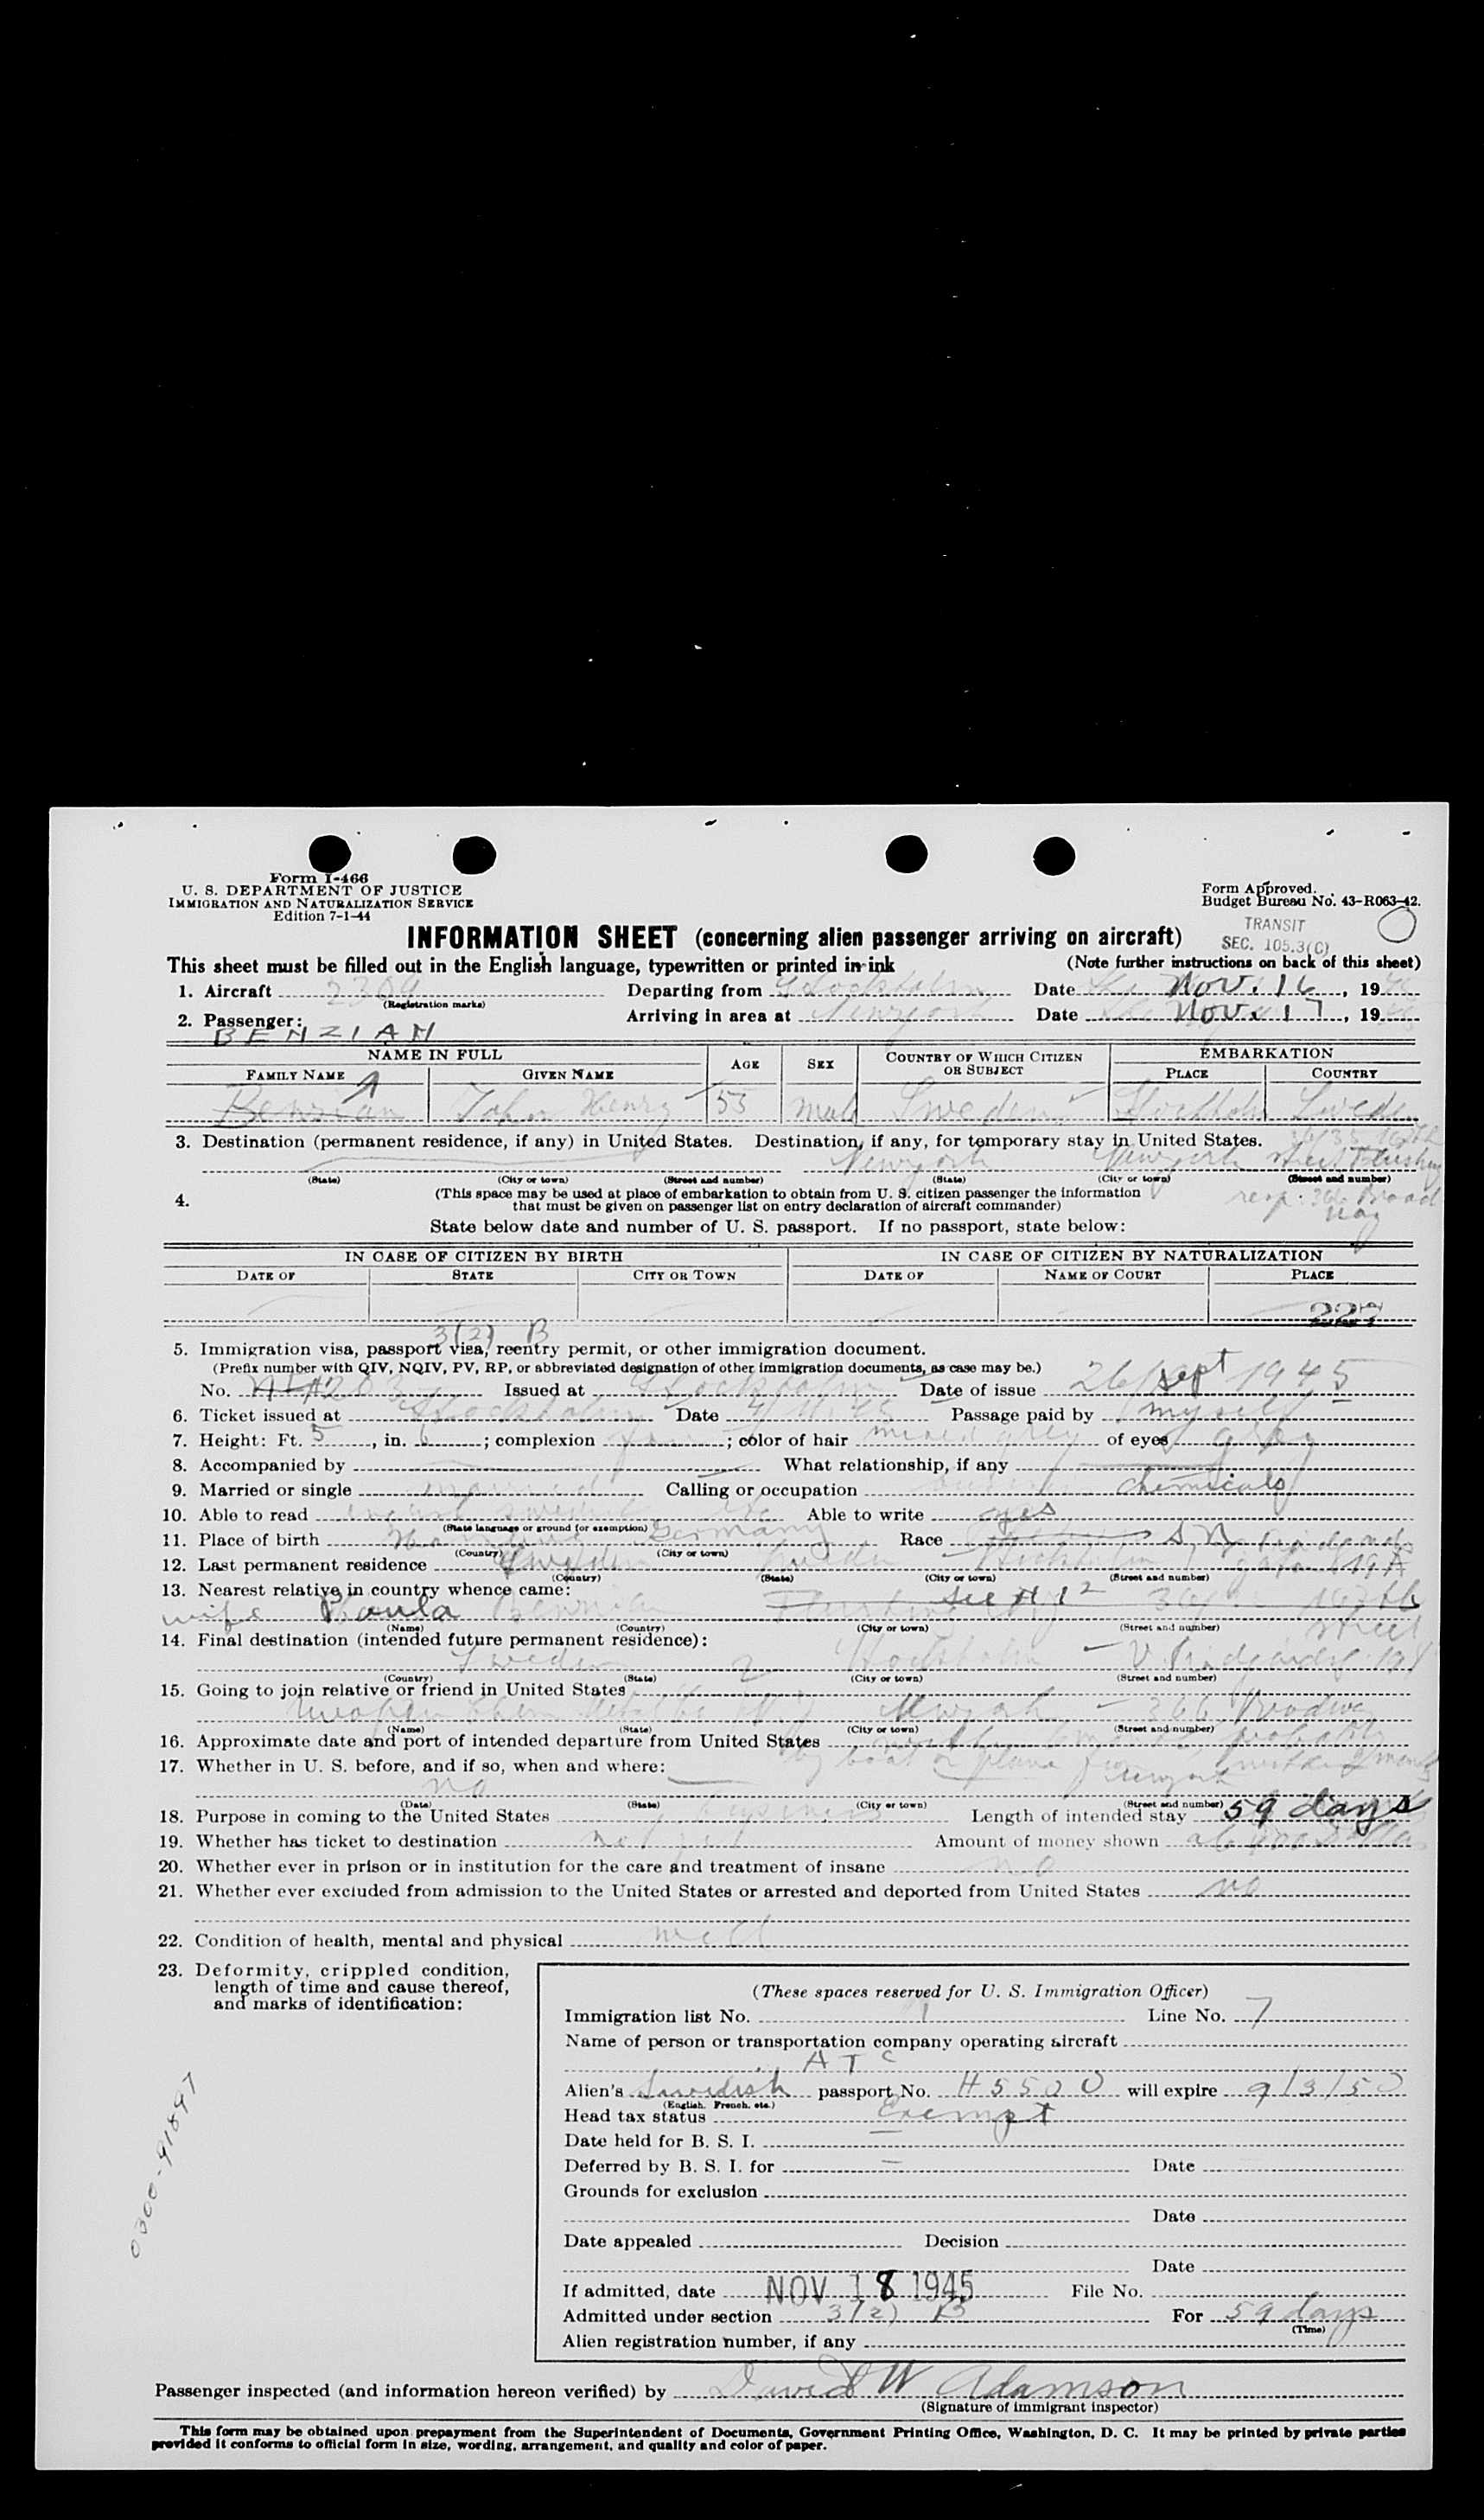 Form I-466
U. S. DEPARTMENT OF JUSTICE
IMMIGRATION AND NATURALIZATION SERVICE
Edition 7-1-44
Form Approved.
Budget Bureau No. 43-R063-42.
INFORMATION SHEET (concerning alien passenger arriving on aircraft)
TRANSIT
SEC. 105.3(C)
This sheet must be filled out in the English language, typewritten or printed in ink (Note further instructions on back of this sheet)
1. Aircraft 2309 Departing from Stockholm Date Nov. 16, 19
(Registration marks)
2. Passenger: Arriving in area at Newyork Date Nov. 17, 19
BENZIAN
NAME IN FULL AGE SEX COUNTRY OF WHICH CITIZEN OR SUBJECT EMBARKATION
FAMILY NAME GIVEN NAME PLACE COUNTRY
Benzian John Henry 53 male Sweden Stockholm Sweden
3. Destination (permanent residence, if any) in United States. Destination, if any, for temporary stay in United States.
Newyork Newyork street Flushing
(State) (City or town) (Street and number) (State) (City or town) (Street and number)
resp. 366 Broadway
4. (This space may be used at place of embarkation to obtain from U. S. citizen passenger the information
that must be given on passenger list on entry declaration of aircraft commander)
State below date and number of U. S. passport. If no passport, state below:
IN CASE OF CITIZEN BY BIRTH IN CASE OF CITIZEN BY NATURALIZATION
DATE OF STATE CITY OR TOWN DATE OF NAME OF COURT PLACE
227
3(2) B
5. Immigration visa, passport visa, reentry permit, or other immigration document.
(Prefix number with QIV, NQIV, PV, RP, or abbreviated designation of other immigration documents, as case may be.)
No. Issued at Stockholm Date of issue 26/sept 1945
6. Ticket issued at Stockholm Date Passage paid by myself
7. Height: Ft. 5, in. 6; complexion ; color of hair mixed grey of eyes grey
8. Accompanied by What relationship, if any
9. Married or single married Calling or occupation chemicals
10. Able to read Able to write yes
(State language or ground for exemption)
11. Place of birth Germany Race
(Country) (City or town)
12. Last permanent residence Sweden Stockholm
(Country) (State) (City or town) (Street and number)
13. Nearest relative in country whence came:
wife Paula Benzian See # 12
(Name) (Country) (City or town) (Street and number)
14. Final destination (intended future permanent residence):
Sweden Stockholm
(Country) (State) (City or town) (Street and number)
15. Going to join relative or friend in United States
Newyork 366 Broadway
(Name) (State) (City or town) (Street and number)
16. Approximate date and port of intended departure from United States
by boat or plane from Newyork
17. Whether in U. S. before, and if so, when and where:
no
(Date) (State) (City or town) (Street and number)
18. Purpose in coming to the United States business Length of intended stay 59 days
19. Whether has ticket to destination not yet Amount of money shown
20. Whether ever in prison or in institution for the care and treatment of insane no
21. Whether ever excluded from admission to the United States or arrested and deported from United States no
22. Condition of health, mental and physical well
23. Deformity, crippled condition,
length of time and cause thereof,
and marks of identification:
0300-91897
(These spaces reserved for U. S. Immigration Officer)
Immigration list No. 1 Line No. 7
Name of person or transportation company operating aircraft
ATC
Alien's Swedish passport No. H5500 will expire 9/3/50
(English, French, etc.)
Head tax status Exempt
Date held for B. S. I.
Deferred by B. S. I. for Date
Grounds for exclusion
Date
Date appealed Decision
Date
If admitted, date NOV 18 1945 File No.
Admitted under section 3(2) B For 59 days
(Time)
Alien registration number, if any
Passenger inspected (and information hereon verified) by David W Adamson
(Signature of immigrant inspector)
This form may be obtained upon prepayment from the Superintendent of Documents, Government Printing Office, Washington, D. C. It may be printed by private parties
provided it conforms to official form in size, wording, arrangement, and quality and color of paper.